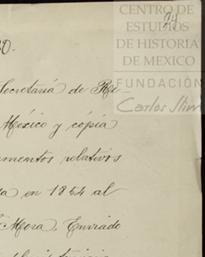 CENTRO DE
ESTUDIOS
DE HISTORIA
DE MEXICO
FUNDACIÓN
Carlos Slim
0.
Secretaría de Re-
México y cópia
umentos relativos
en 1844 al
Mora, Enviado